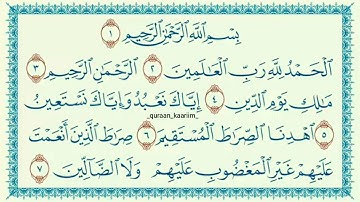 بِسْمِ اللَّهِ الرَّحْمَٰنِ الرَّحِيمِ ١
الْحَمْدُ لِلَّهِ رَبِّ الْعَالَمِينَ ٢ الرَّحْمَٰنِ الرَّحِيمِ ٣
مَالِكِ يَوْمِ الدِّينِ ٤ إِيَّاكَ نَعْبُدُ وَإِيَّاكَ نَسْتَعِينُ
_quraan_kaariim_
٥ اهْدِنَا الصِّرَاطَ الْمُسْتَقِيمَ ٦ صِرَاطَ الَّذِينَ أَنْعَمْتَ
عَلَيْهِمْ غَيْرِ الْمَغْضُوبِ عَلَيْهِمْ وَلَا الضَّالِّينَ ٧